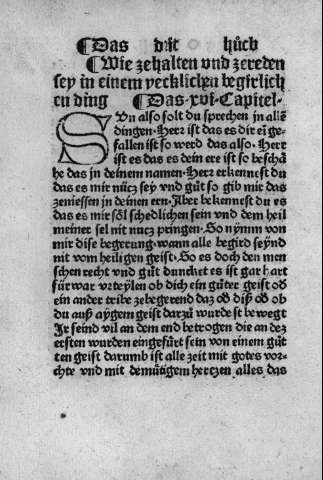 ¶Das drit bůch
¶Wie zehalten vnd zereden
sey in einem yecklichen begirlich
en ding ¶Das·xvi·Capitel·
SVn also solt du sprechen in allē
dingen·Herr ist das es dir eī ge-
fallen ist so werd das also·Herr
ist es das es dein ere ist so beschā
he das in deinem namen·Herr erkennest du
das es mir nücz sey vnd gůt so gib mir das
zeniessen in deinen ern·Aber bekennest du es
das es mir söl schedlichen sein vnd dem heil
meiner sel nit nucz pringen·So nymm von
mir dise begerung·wann alle begird seynd
nit vom heiligen geist·So es doch den men
schen recht vnd gůt duncket es ist gar hart
fürwar vrteylen ob dich ein gůter geist od
ein ander tribe zebegerend daz od diß od ob
du auß aygem geist darzů wurdest bewegt
Ir seind vil an dem end betrogen die an dez
ersten wurden eingefürt sein von einem gů
ten geist darumb ist alle zeit mit gotes vor-
chte vnd mit demůtigem hertzen alles das